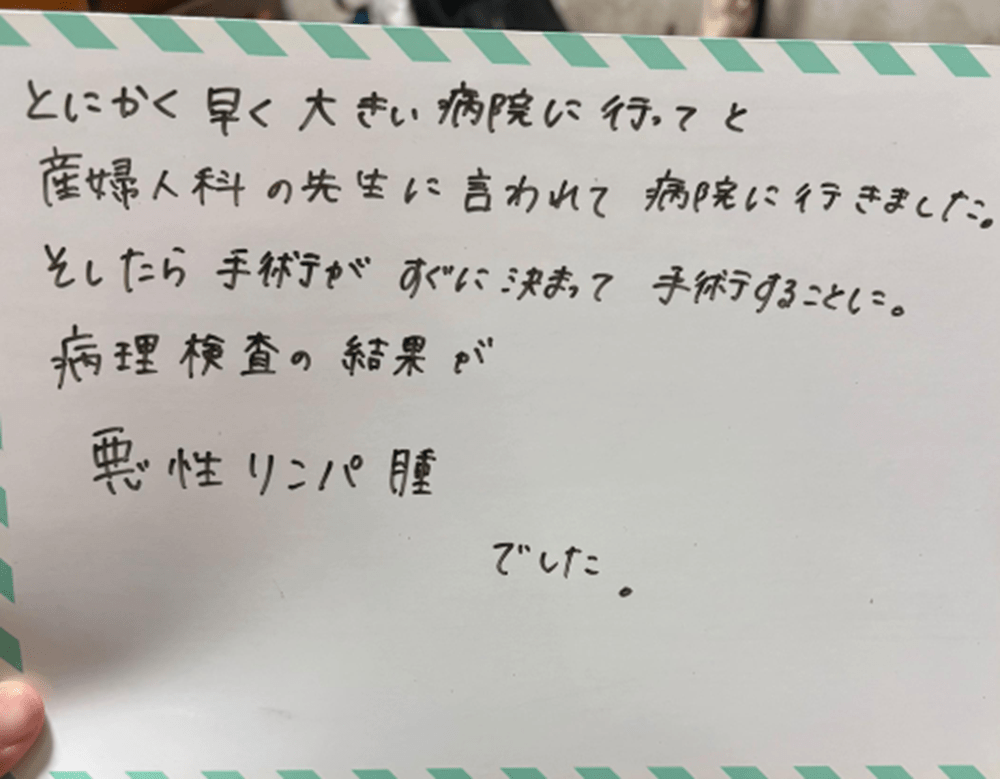 とにかく早く大きい病院に行ってと
産婦人科の先生に言われて 病院に行きました。
そしたら手術がすぐに決まって 手術することに。
病理検査の結果が
悪性リンパ腫
でした。